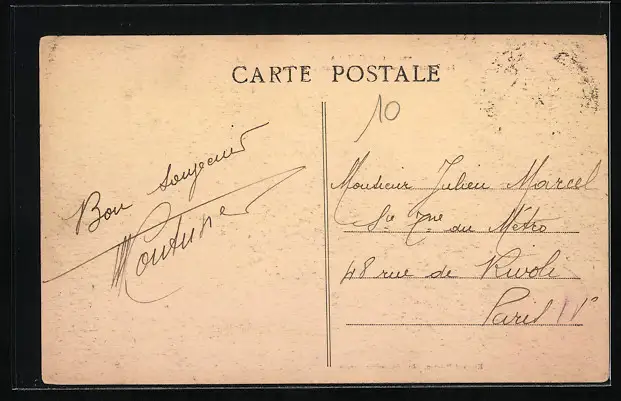 CARTE POSTALE
10
Bon souvenir
Monsieur Julien Marcel
du Métro
48 rue de Rivoli
Paris IVe